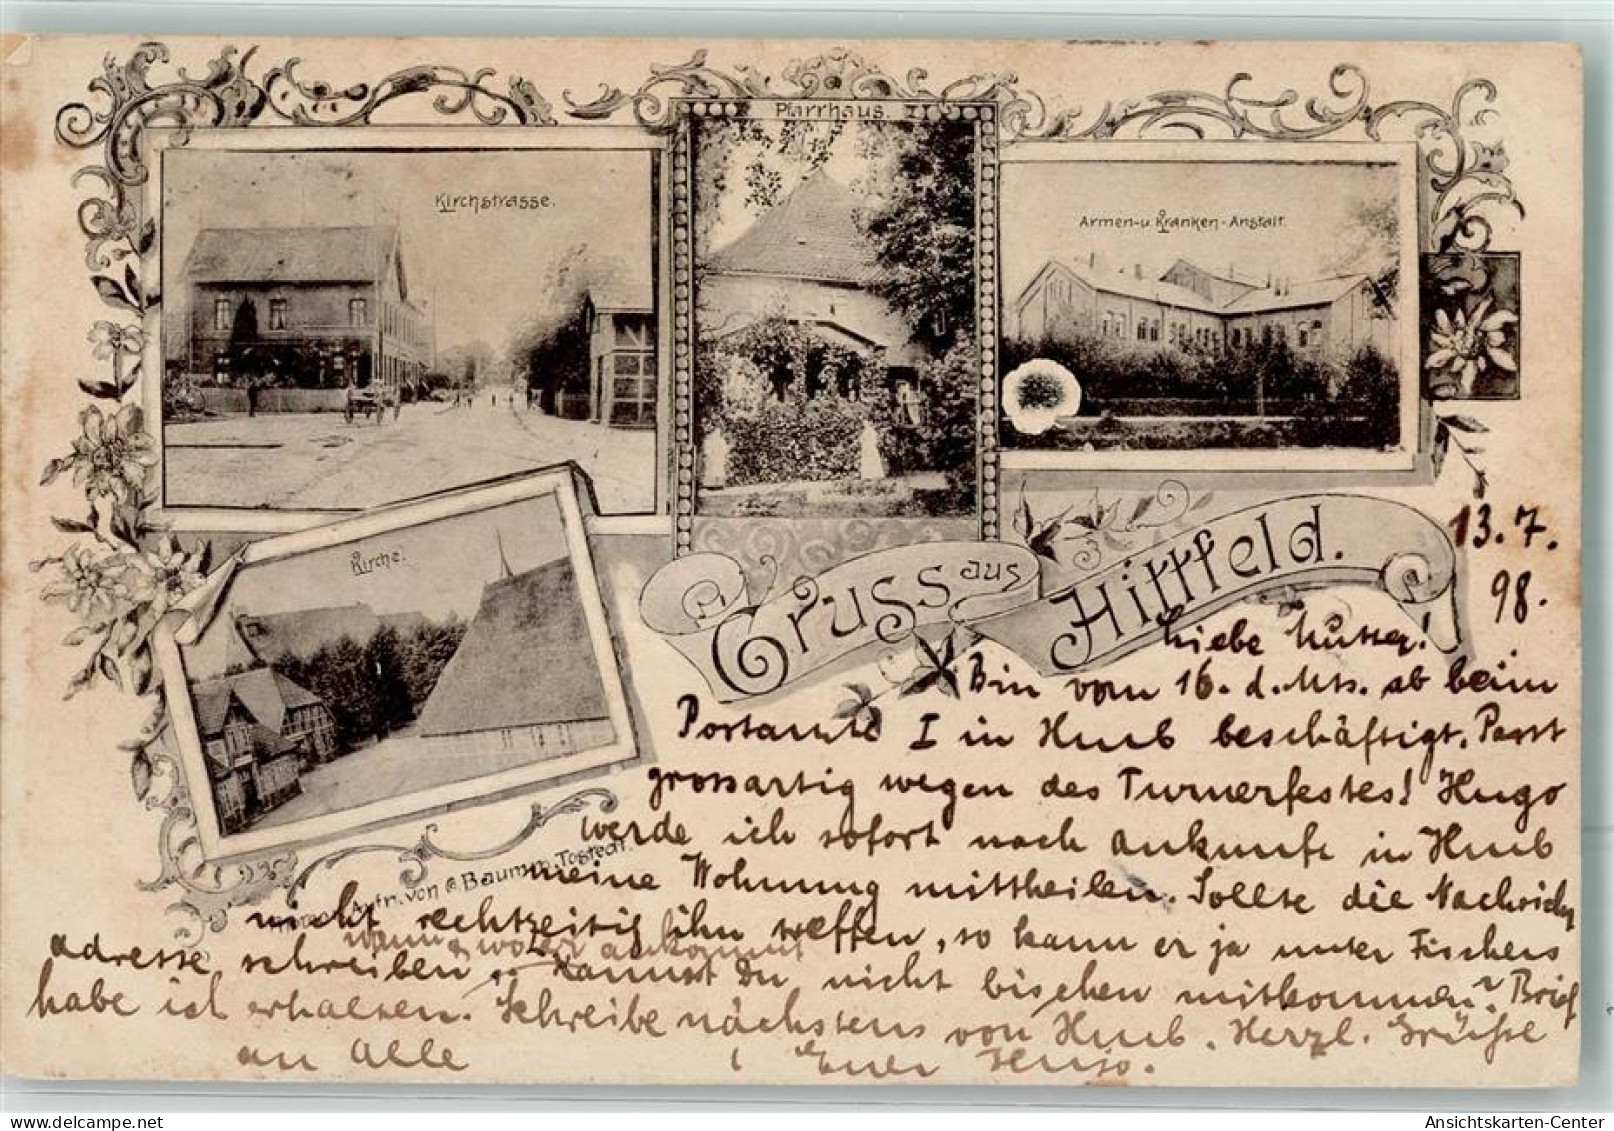 Pfarrhaus.
Kirchstrasse.
Armen- u. Kranken-Anstalt.
Kirche.
Gruss aus Hittfeld.
Aufn. von G. Baumm, Tostedt.
13. 7.
98.
Liebe Mutter!
Bin vom 16. d. Mts. ab beim
Postamte I in Hmb beschäftigt. Passt
grossartig wegen des Turnerfestes! Hugo
werde ich sofort nach Ankunft in Hmb
meine Wohnung mittheilen. Sollte die Nachricht
nicht rechtzeitig ihn treffen, so kann er ja unter Fischers
wann, woher ankommt
adresse schreiben. Kannst Du nicht bischen mitkommen? Brief
habe ich erhalten. Schreibe nächstens von Hmb. Herzl. Grüße
an Alle Euer
Ansichtskarten-Center